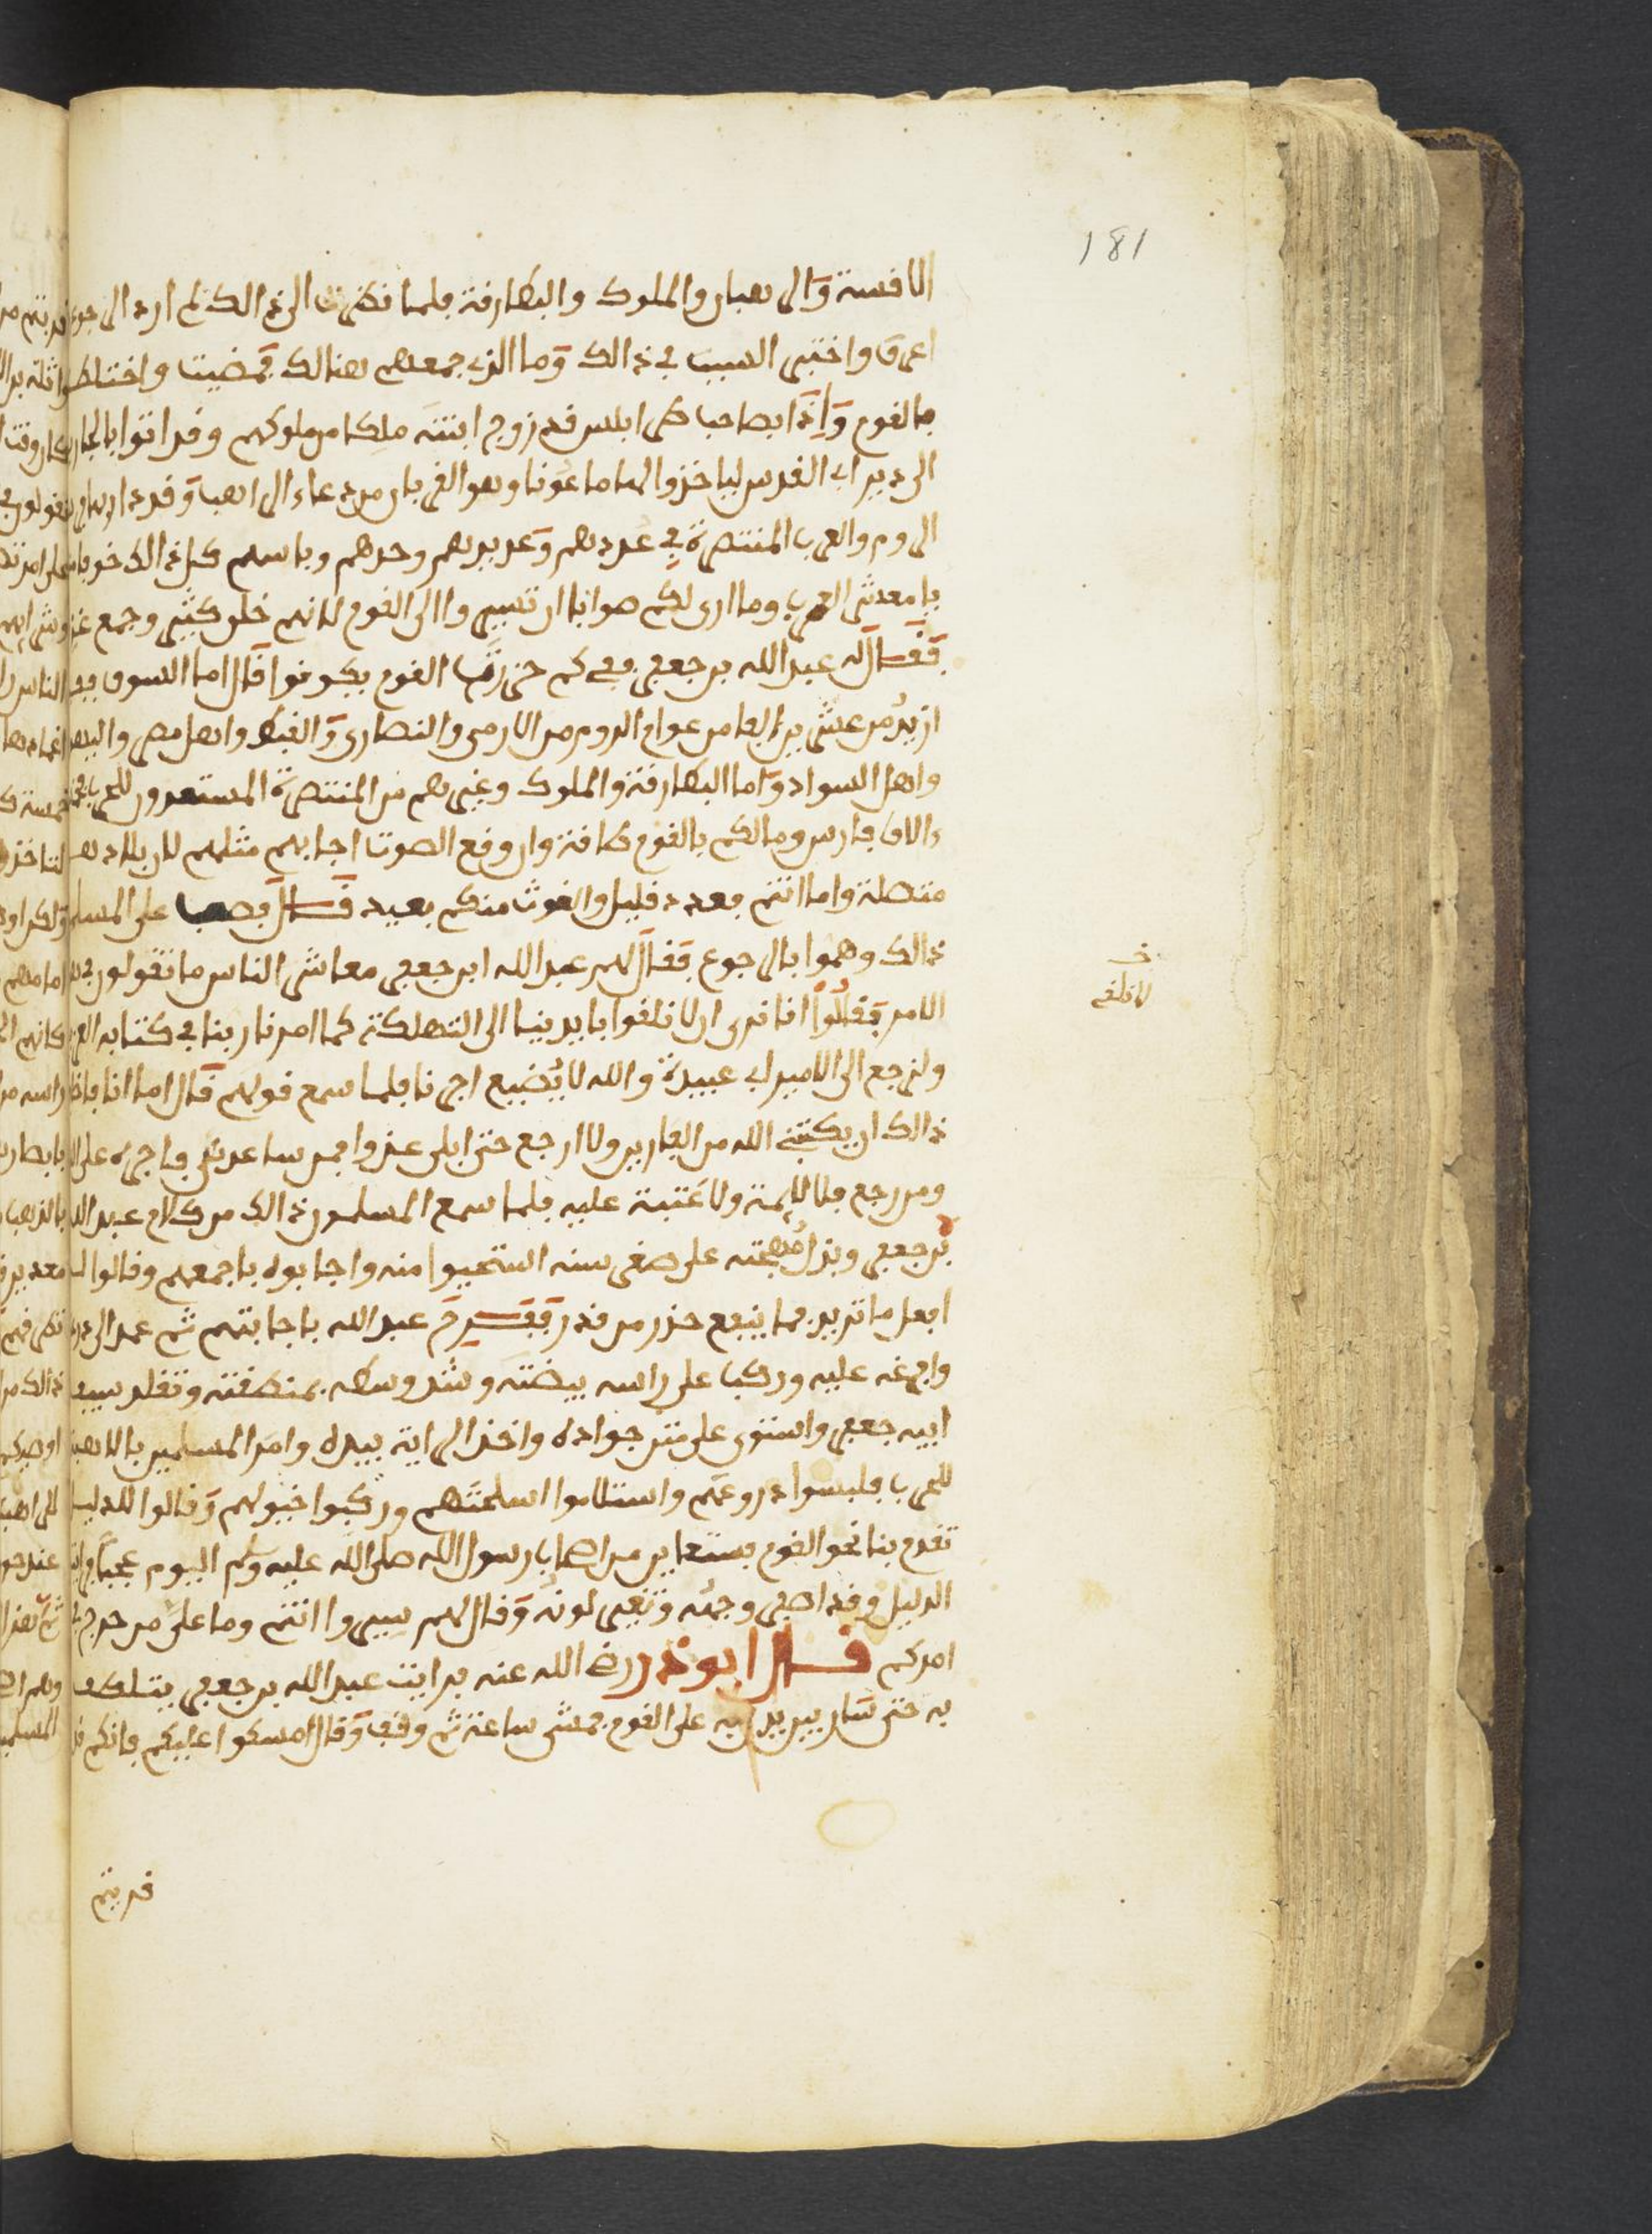 181
الاقسة والرهبان والملوك والبطارقة فلما نظرت الى ذالك لم ارد الرجوع
اعرف واختبر السبب في ذالك وما الذي جمعهم هنالك فمضيت واختلطت
بالقوم واذا بصاحب طرابلس قد زوج ابنته ملكا من ملوكهم وقد اتوا بالجارية
الى دير ابي القدس لياخذوا لها ماعونا وهو القربان من دعاء الراهب وقد دار بها
الروم والعرب المنتصرة في عددهم وعديدهم وحدهم وباسهم كل ذالك خوفا
يا معشر العرب وما ارى لكم صوابا ان تسيروا الى القوم لانهم خلق كثير وجمع غزير
فقال له عبد الله بن جعفر في كم حزرت القوم يكونوا قال اما السوق ففيه
ازيد من عشرين الفا من عوام الروم من الارمن والنصارى والقبط واهل مصر واليهود
واهل السواد واما البطارقة والملوك وغيرهم من المنتصرة المستعدون للحرب فخمسة
ءالاف فارس وما لكم بالقوم طاقة وان وقع الصوت اجابهم مثلهم لان بلادهم
متصلة واما انتم فعدد قليل والغوث منكم بعيد قال فصعب على المسلمين
ذالك وهموا بالرجوع فقال لهم عبد الله ابن جعفر معاشر الناس ما تقولون في هذا
الامر فقالوا انا نرى ان لا نلقوا بايدينا الى التهلكة كما امرنا ربنا في كتابه العزيز
خ
لا نلقي
ونرجع الى الامير ابي عبيدة والله لا يضيع اجرنا فلما سمع قولهم قال اما انا فاخاف
ذالك ان يكتبني الله من الفارين ولا ارجع حتى ابلي عذرا فمن ساعدني فاجره على الله
ومن رجع فلا لايمة ولا عتبة عليه فلما سمع المسلمون ذالك من كلام عبد الله
بن جعفر وبذل مهجته على صغر سنه استحيوا منه واجابوه باجمعهم وقالوا له
افعل ما تريد فما ينفع حذر من قدر ففرح عبد الله باجابتهم ثم عمد الى درعه
وافرغه عليه وركب على راسه بيضته وشد وسطه بمنطقته وتقلد سيف
ابيه جعفر واستوى على متن جواده واخذ الراية بيده وامر المسلمين بالاهبة
للحرب فلبسوا دروعهم واستلاموا اسلحتهم وركبوا خيولهم وقالوا للدليل
تقدم بنا نحو القوم فستعاين من اصحاب رسول الله صلى الله عليه وسلم اليوم عجبا
الدليل وقد اصفر وجهه وتغير لونه وقال لهم سيروا انتم وما علي من حرج في
امركم قال ابو ذر رضي الله عنه فرايت عبد الله بن جعفر يتلطف
به حتى سار بين يديه على القوم فمشى ساعة ثم وقف وقال امسكوا عليكم فانكم قد
قربتم